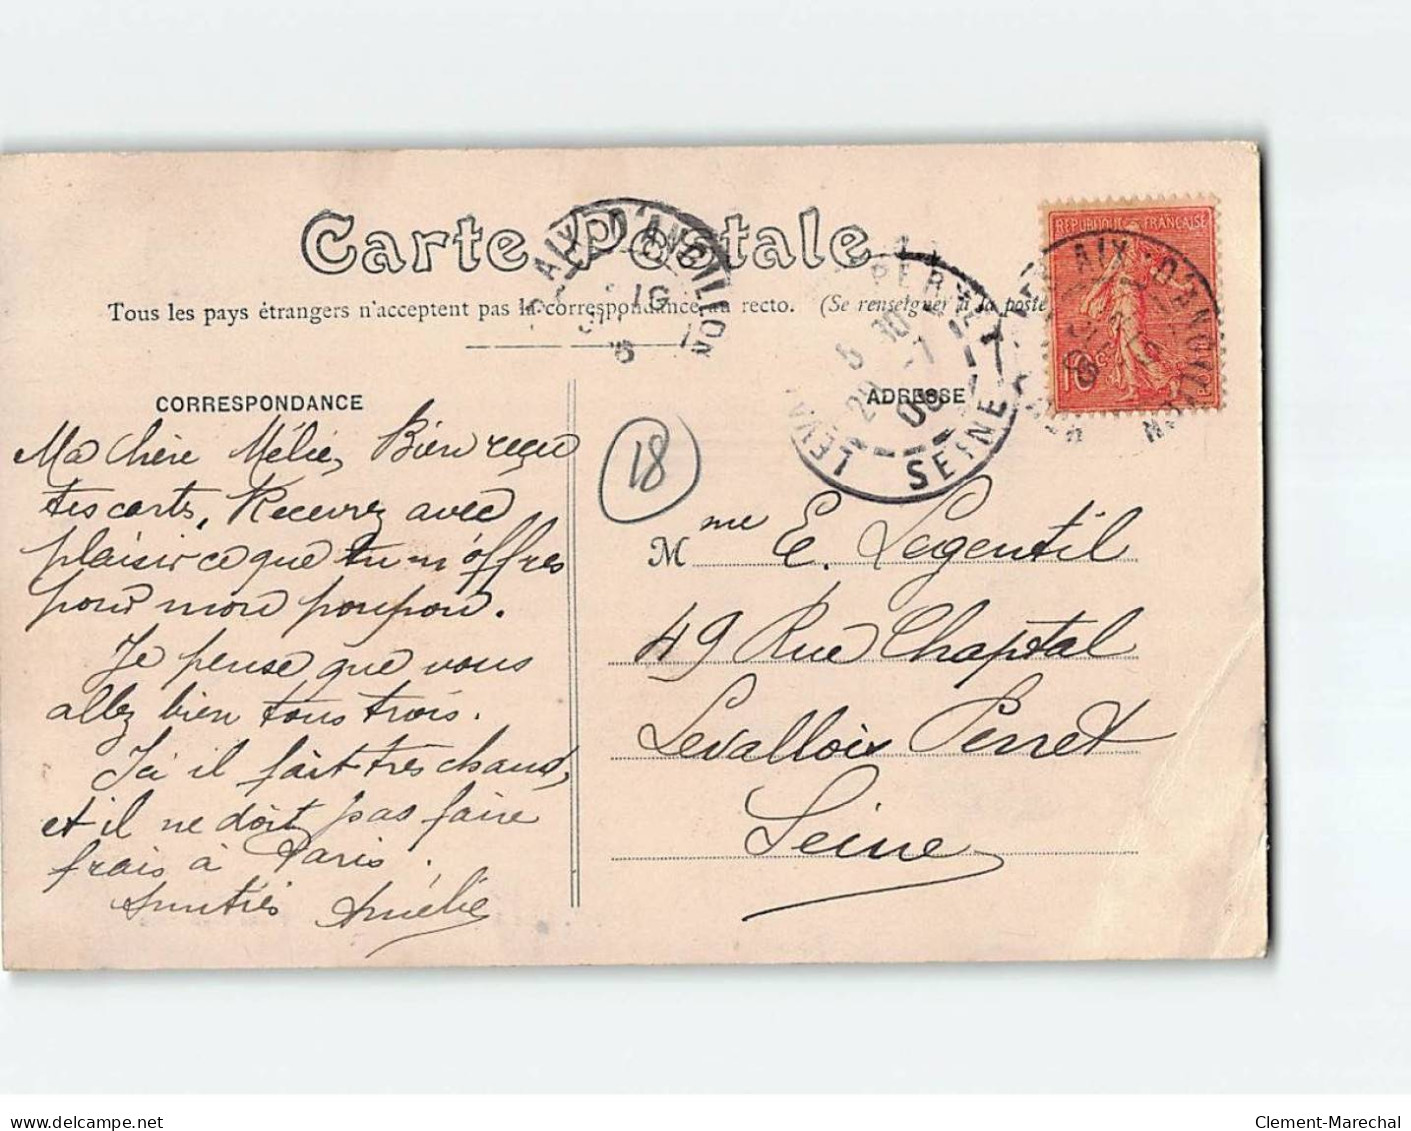 Carte Postale
Tous les pays étrangers n'acceptent pas la correspondance au recto. (Se renseigner à la poste
RÉPUBLIQUE FRANÇAISE
10c
AIX D'ANGILLON
AIX D'ANGILLON
LEVALLOIS PERRET
5 10
29 -7
06
SEINE
CORRESPONDANCE
ADRESSE
18
Ma chère Mélie, Bien reçu
tes carts, Recevrez avec
plaisir ce que tu m'offres
pour mon poupon.
Je pense que vous
allez bien tous trois.
Ici il fait très chaud,
et il ne doit pas faire
frais à Paris.
Amitiés Amélie
Mme E. Legentil
49 Rue Chaptal
Levallois Perret
Seine
Clement-Marechal